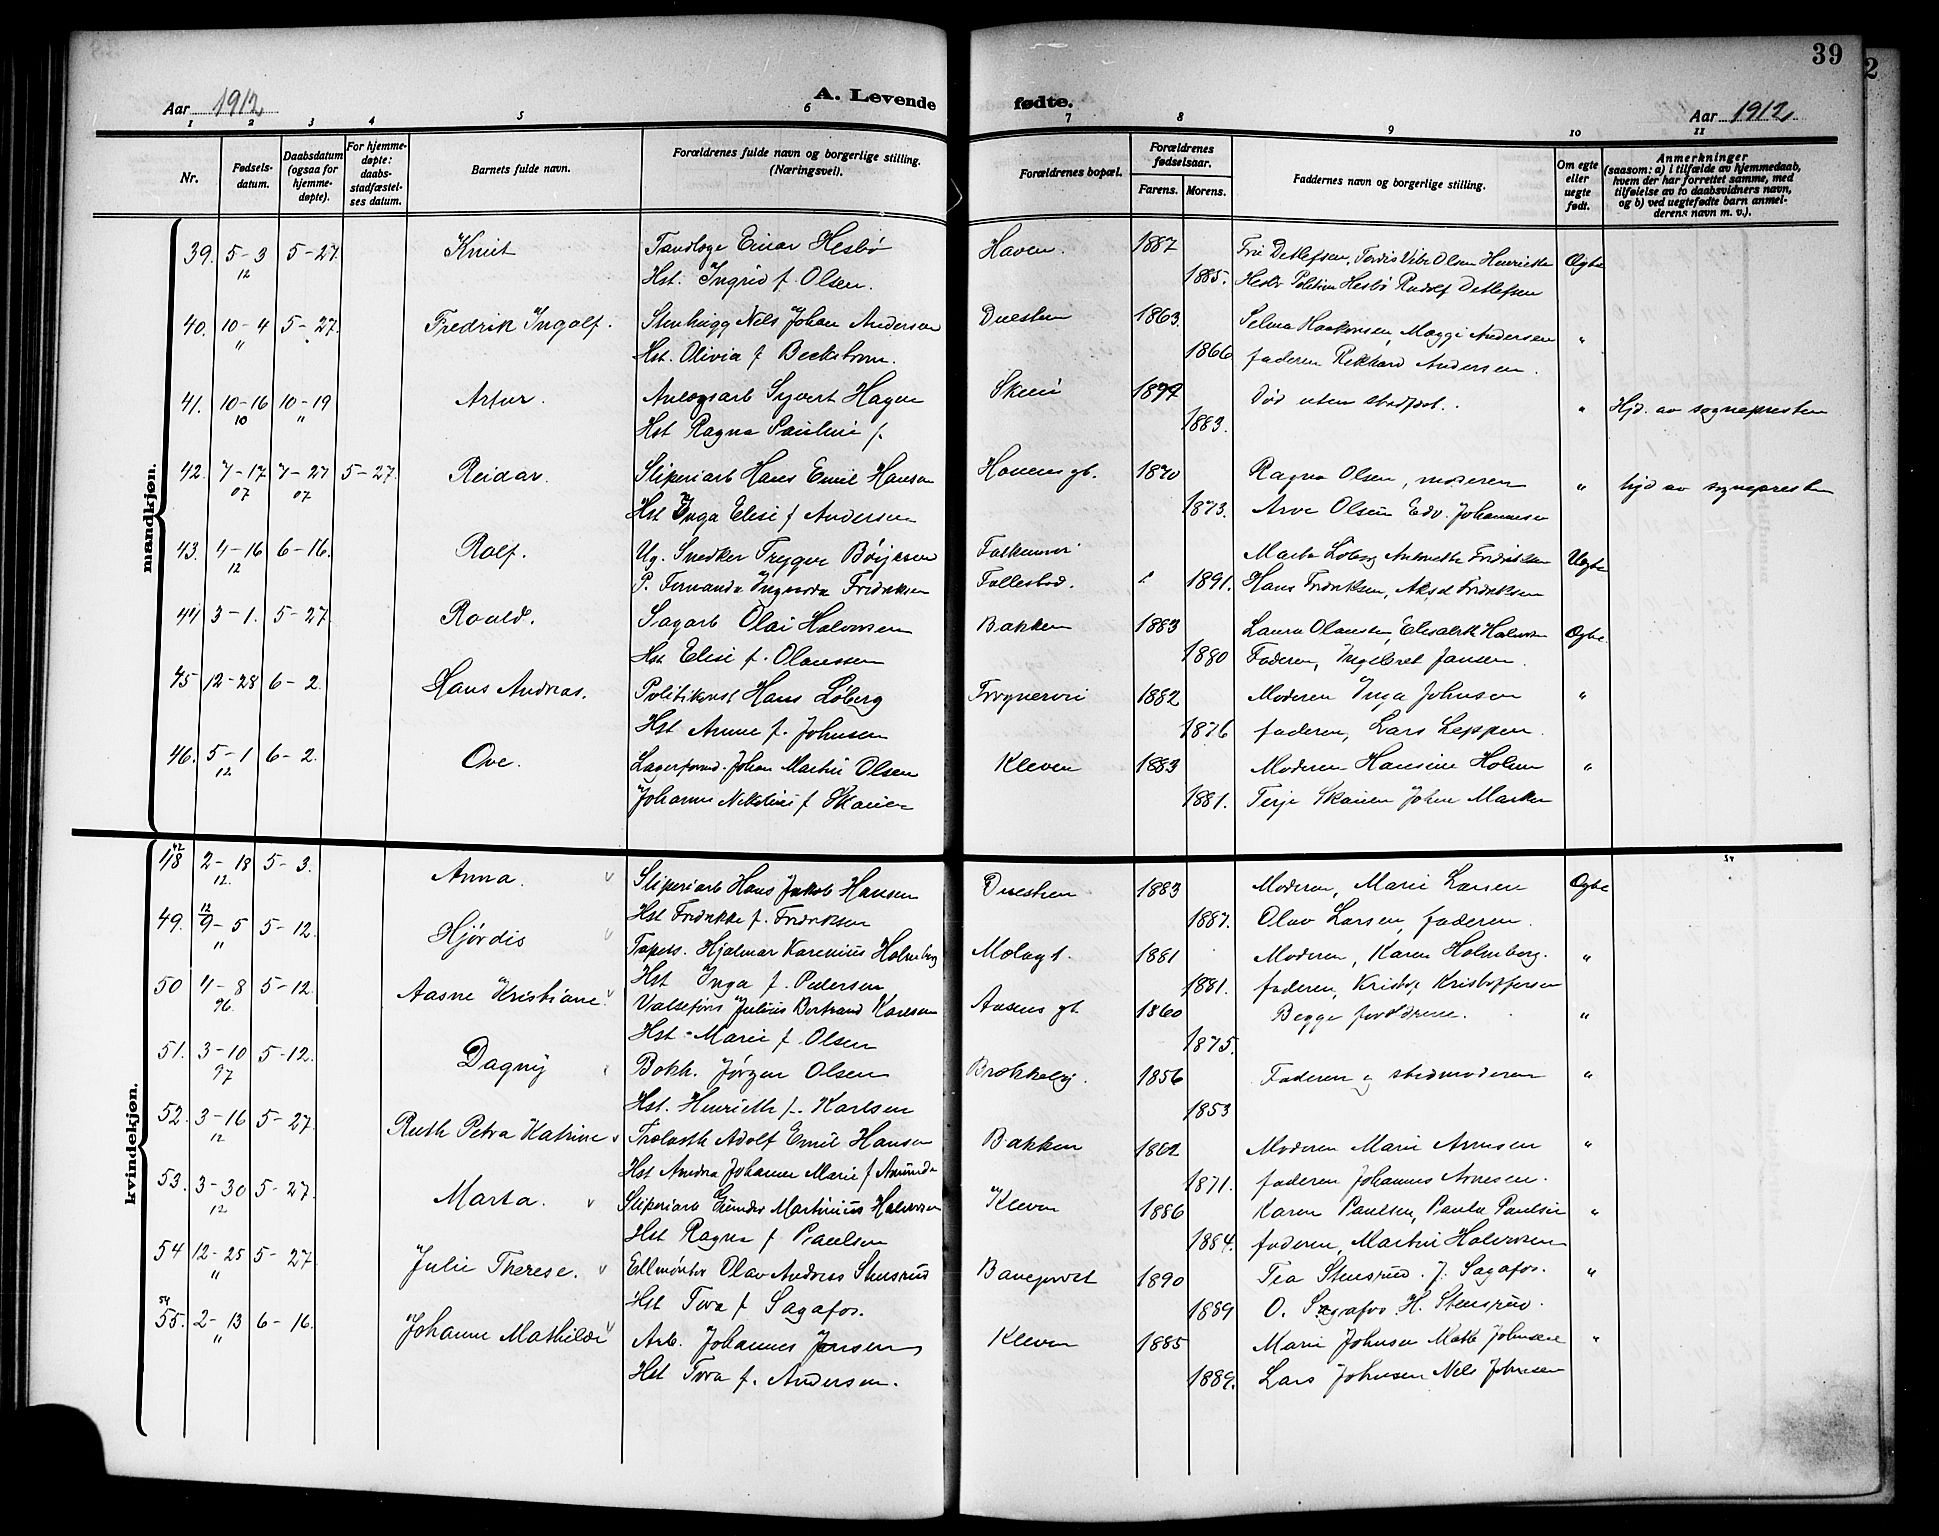 39
2
Aar 1912
A. Levende
fødte.
Aar 1912
1 2 3 4 5 6 7 8 9 10 11
Nr.
Fødsels-
datum.
Daabsdatum
(ogsaa for
hjemme-
døpte).
For hjemme-
døpte:
daabs-
stadfæstel-
ses datum.
Barnets fulde navn.
Forældrenes fulde navn og borgerlige stilling.
(Næringsvei).
Forældrenes bopæl.
Forældrenes
fødselsaar.
Farens. Morens.
Faddernes navn og borgerlige stilling.
Om egte
eller
uegte
født.
Anmerkninger
(saasom: a) i tilfælde av hjemmedaab,
hvem der har forrettet samme, med
tilføielse av to daabsvidners navn,
og b) ved uegtefødte barn anmel-
derens navn m. v.).
mandkjøn.
39. 5-3 5-27. Knut Tandlæge Einar Hesbø Haven. 1887 Fru Detlefsen, Tordis Vibe Olsen Henriette Egte
12 Hst. Ingrid f. Olsen. 1885. Hesbø Hesbø Rudolf Detlefsen
40. 10-4 5-27. Fredrik Ingolf. Stenhugg Nels Johan Andersen Damstien 1863. Selma Haakonsen, Maggi Andersen "
" Hst. Olivia f Beckstrøm. 1866 faderen Rikhard Andersen.
41. 10-16 10-19 Artur. Anlægsarb Syvert Hagen Skien 1877 Død uten stadfæst. " Hjd. av sognepresten
10 " Hst Ragna Pauline f. 1883.
42. 7-17 7-27 5-27. Reidar. Sliperiarb Hans Emil Hansen Havensgt. 1870 Ragna Olsen, moderen " hjd av sognepresten
07 07 Hst Inga Elise f Andersen 1873. Arve Olsen Edv. Johannesen
43. 4-16 6-16. Rolf. Ug. Snedker Trygve Børjesen Falkumvei Marta Løberg Fredriksen Uegte
12 P. Fernanda Fridriksen Follestad. 1891. Hans Fridriksen, Aksel Fridriksen
44 3-1. 5-27. Roald. Sagarb Olai Halvorsen Bakken 1883 Laura Olaussen, Elisabeth Halvorsen Egte.
Hst Elise f. Olaussen 1880 Faderen, Ingebret Jansen.
45 12-28 6-2. Hans Andreas. Politikonst Hans Løberg Frognervei 1882 Moderen Inga Johnsen "
Hst Anne f. Johnsen 1876 faderen, Lars Leppen.
46. 5-1 6-2. Ove. Lagerformd. Johan Martin Olsen Kleven 1883 Moderen Hansine Holm "
12 Johanne Nikoline f Skauen 1881. Terje Skauen Johan Marker
kvindekjøn.
48 2-18 5-3. Anna. v Sliperiarb Hans Jakob Hansen Damstien 1883 Moderen, Marie Larsen Egte
12. Hst Fridrikke f. Fridriksen 1887. Olav Larsen, faderen.
49. 9-5 5-12. Hjørdis v Tapets. Hjalmar Karenius Holmberg Mælagt. 1881 Moderen, Karen Holmberg. "
" Hst Inga f. Pedersen 1881. faderen, Kristofersen
50 4-8 5-12. Aasne Kristiane v Valsefører Julius Bertrand Karlsen Aasens gt 1860 Begge forældrene. "
96. Hst Marie f. Olsen 1875.
51. 3-10 5-12. Dagny Bokh. Jørgen Olsen Brækkelvj. 1856 Faderen og stedmoderen "
97 Hst. Henriette f. Karlsen 1853
52. 3-16 5-27. Ruth Petra Katrine v Trælasth Adolf Emil Hansen Bakken 1862 Moderen Marie Arnesen "
12 Hst Andrea Johanne Marie f 1871. faderen Johannes Arnesen.
53. 3-30 5-27. Marta. v Sliperiarb Gunder Martinius Halvorsen Kleven 1886 Karen Paulsen, Paula Paulsen "
12 Hst Ragna f Paulsen 1884. faderen, Martin Halvorsen
54 12-25 5-27. Julie Therese. v Ellmontør Olav Andreas Stensrud Banejordet 1890 Tea Stensrud. J. Sagafos. "
" Hst Tora f Sagafos. 1889 O. Sagafos H. Stensrud.
55. 2-13 6-16. Johanne Mathilde v Arb. Johannes Jensen Kleven 1885 Marie Johnsen Johnsen "
" Hst Tora f. Andersen. 1889. Lars Johnsen Nels Johnsen